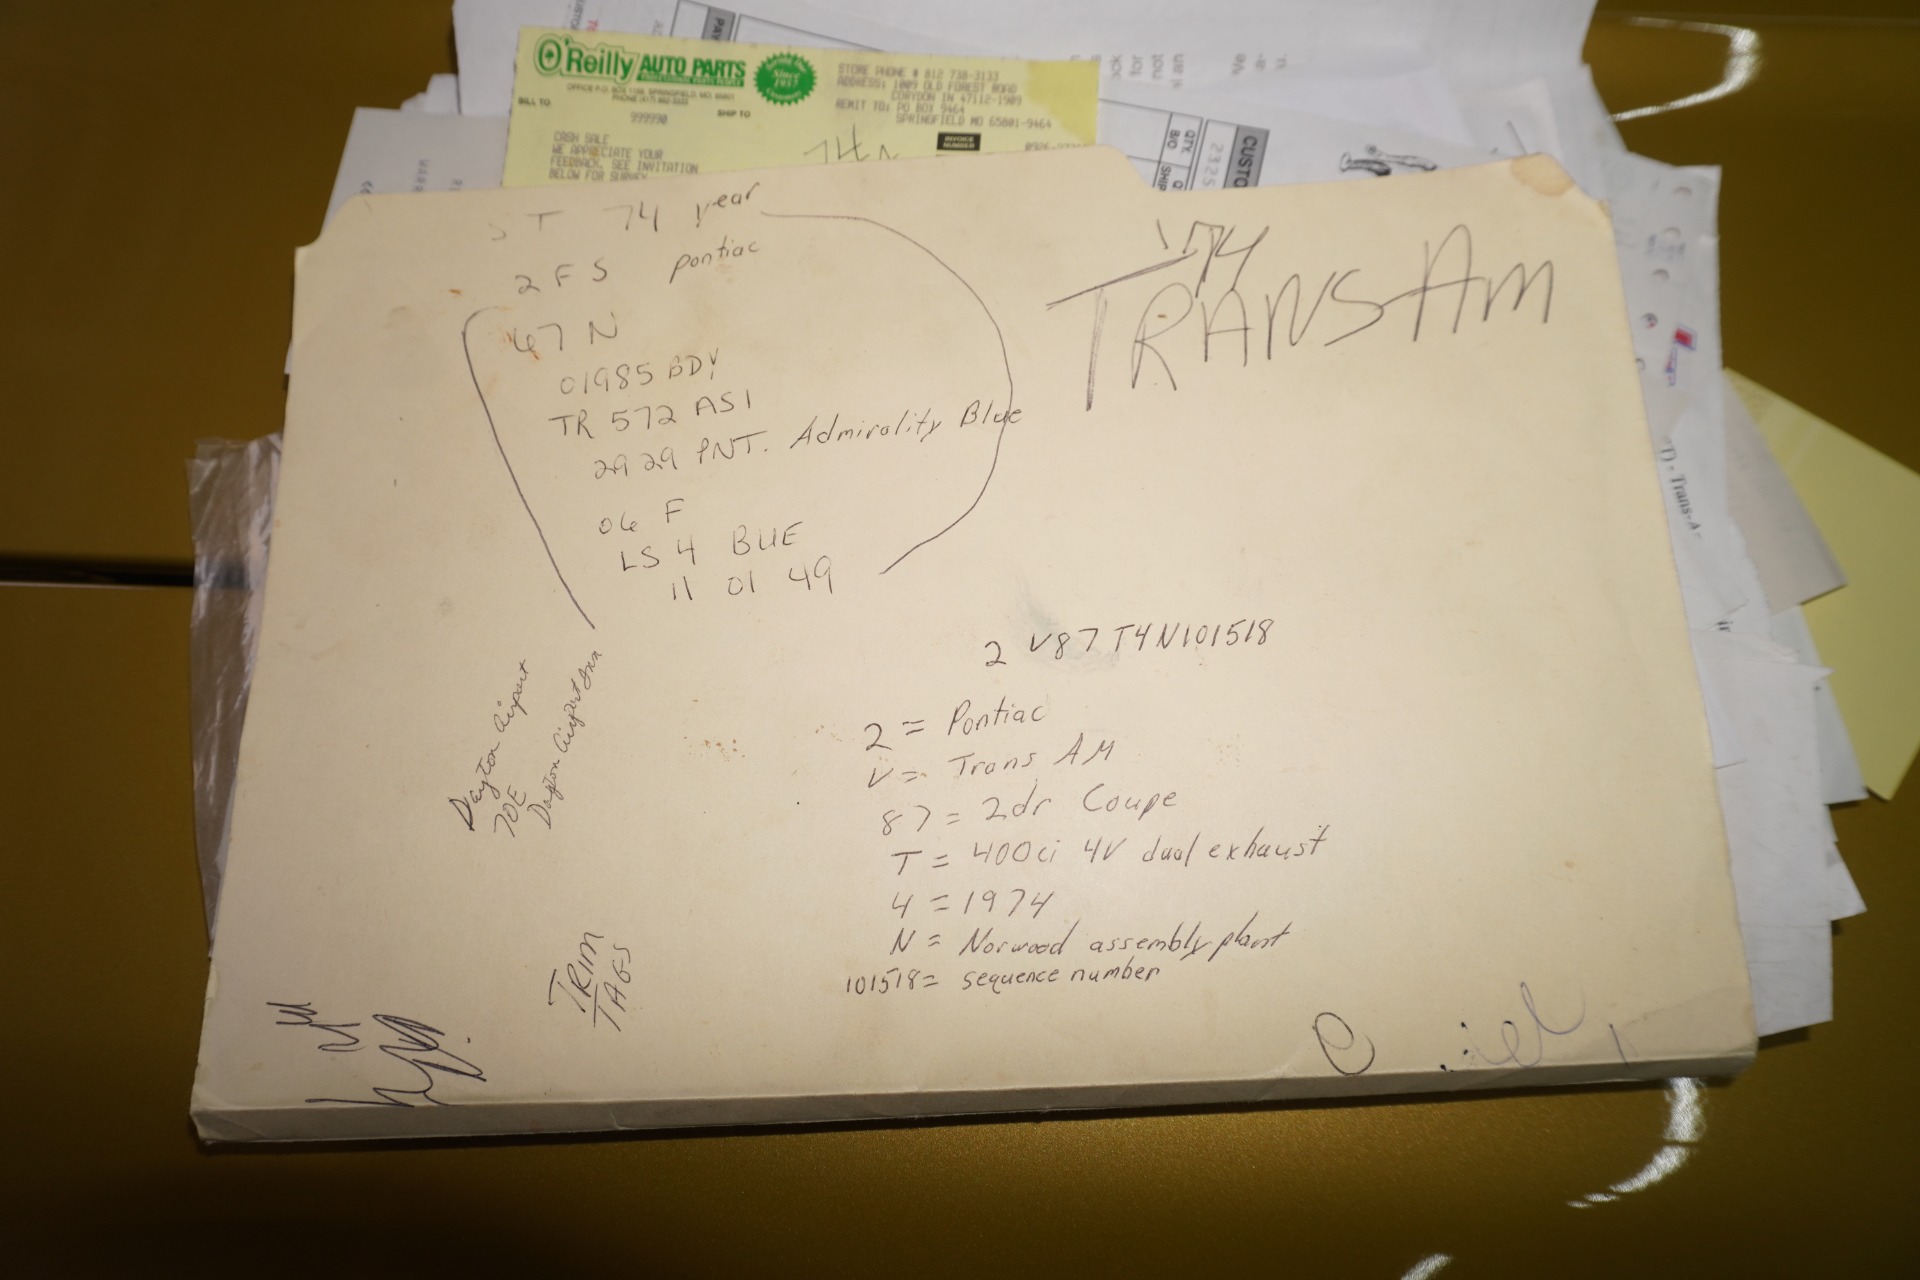 O'Reilly AUTO PARTS
PROFESSIONAL PARTS PEOPLE
Since 1957
OFFICE P.O. BOX 1156, SPRINGFIELD, MO. 65801
BILL TO
SHIP TO
999990
STORE PHONE # 812 738-3133
ADDRESS: 1009 OLD FOREST ROAD
CORYDON IN 47112-1909
REMIT TO: PO BOX 9464
SPRINGFIELD MO 65801-9464
INVOICE NUMBER
CASH SALE
WE APPRECIATE YOUR
FEEDBACK, SEE INVITATION
BELOW FOR SURVEY
CUSTO
2325
QTY. B/O
SHIP
PAY
ok
for
not
an
We
ST 74 year
2 F S pontiac
67 N
01985 BDY
TR 572 AS1
2929 PNT. Admirality Blue
06 F
LS 4 BUE
11 01 49
'74
TRANS AM
2 V87T4N101518
2 = Pontiac
V = Trans AM
87 = 2dr Coupe
T = 400ci 4V dual exhaust
4 = 1974
N = Norwood assembly plant
101518 = sequence number
Dayton Airport
70E
Dayton Airport Inn
TRIM
TAGS
Trans-A